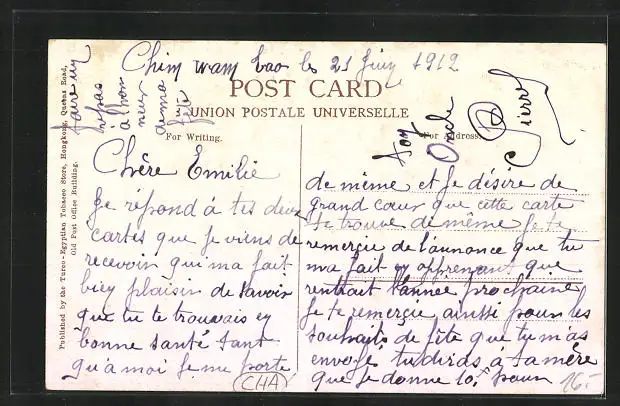 Chin wam tao le 21 Juin 1912
POST CARD
UNION POSTALE UNIVERSELLE
For Writing.
For Address.
Published by the Turco-Egyptian Tobacco Store, Hongkong, Queens Road,
Old Post Office Building.
Chère Emilie
Je répond à tes deux
cartes que je viens de
recevoir qui ma fait
bien plaisir de savoir
que tu te trouvais en
bonne santé tant
qu'à moi je me porte
de même et je désire de
grand cœur que cette carte
te trouve de même je te
remercie de l'annonce que tu
ma fait en apprenant que
rentrait l'année prochaine
je te remercie ainssi pour les
souhaits de fête que tu m'as
envoyé tu diras à ta mère
que je donne 10f pour
faire un
repas
à l'hon
neur
de ma
fête
Ton
Oncle
Pierre
CHA
16.-